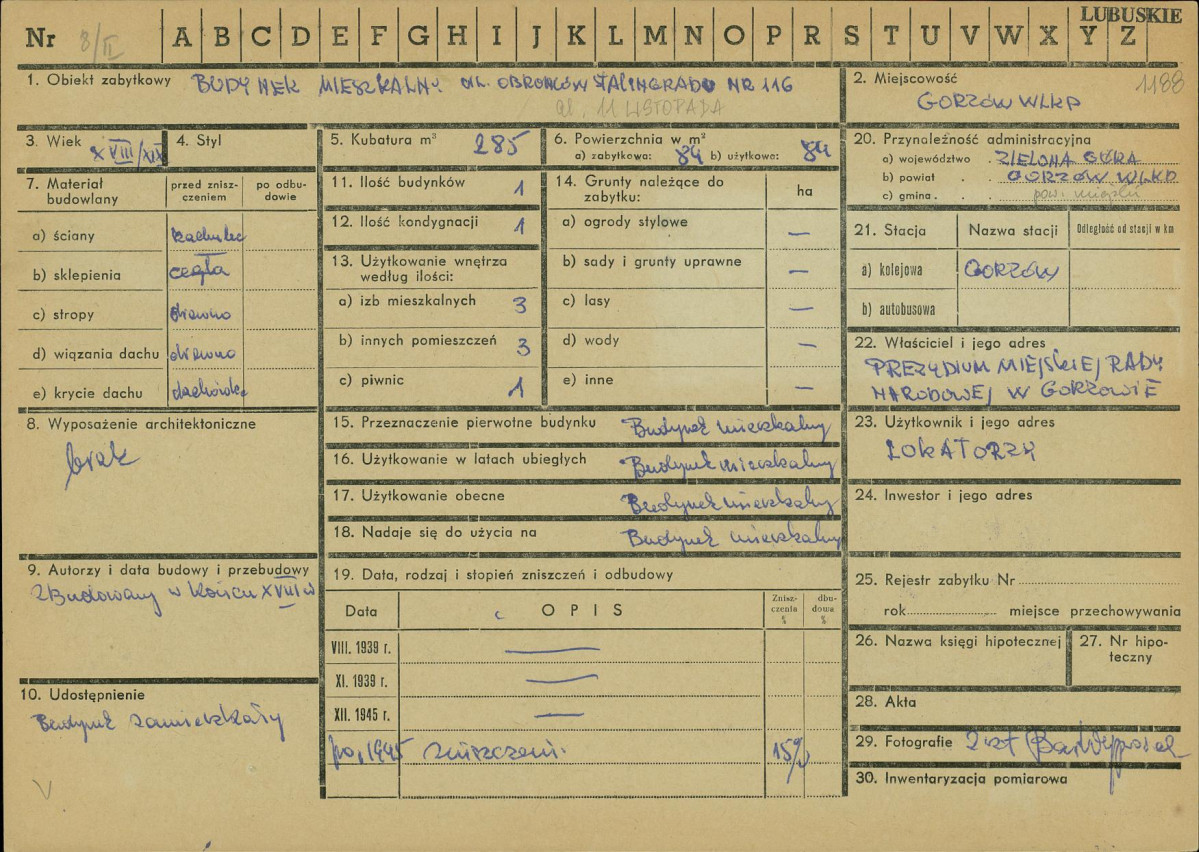 LUBUSKIE
Nr 3/II A B C D E F G H I J K L M N O P R S T U V W X Y Z
1. Obiekt zabytkowy BUDYNEK MIESZKALNY UL. OBROŃCÓW STALINGRADU NR 116
ul. 11 LISTOPADA
2. Miejscowość 1188
GORZÓW WLKP
3. Wiek XVIII/XIX
4. Styl
5. Kubatura m³ 285
6. Powierzchnia w m²
a) zabytkowa: 84 b) użytkowa: 84
20. Przynależność administracyjna
a) województwo ZIELONA GÓRA
b) powiat GORZÓW WLKP
c) gmina pow. miejski
7. Materiał budowlany
przed znisz-
czeniem
po odbu-
dowie
a) ściany
b) sklepienia cegła
c) stropy drewno
d) wiązania dachu drewno
e) krycie dachu dachówka
11. Ilość budynków 1
12. Ilość kondygnacji 1
13. Użytkowanie wnętrza
według ilości:
a) izb mieszkalnych 3
b) innych pomieszczeń 3
c) piwnic 1
14. Grunty należące do
zabytku: ha
a) ogrody stylowe —
b) sady i grunty uprawne —
c) lasy —
d) wody —
e) inne —
21. Stacja Nazwa stacji Odległość od stacji w km
a) kolejowa GORZÓW
b) autobusowa
22. Właściciel i jego adres
PREZYDIUM MIEJSKIEJ RADY
NARODOWEJ W GORZOWIE
8. Wyposażenie architektoniczne
brak
15. Przeznaczenie pierwotne budynku Budynek mieszkalny
16. Użytkowanie w latach ubiegłych Budynek mieszkalny
17. Użytkowanie obecne Budynek mieszkalny
18. Nadaje się do użycia na Budynek mieszkalny
23. Użytkownik i jego adres
LOKATORZY
24. Inwestor i jego adres
9. Autorzy i data budowy i przebudowy
Zbudowany w końcu XVIII w
19. Data, rodzaj i stopień zniszczeń i odbudowy
Data OPIS
Znisz-
czenia
%
dbu-
dowa
%
VIII. 1939 r. —
XI. 1939 r. —
XII. 1945 r. —
po. 1945 15%
10. Udostępnienie
Budynek zamieszkały
25. Rejestr zabytku Nr
rok miejsce przechowywania
26. Nazwa księgi hipotecznej
27. Nr hipo-
teczny
28. Akta
29. Fotografie 2 szt
30. Inwentaryzacja pomiarowa